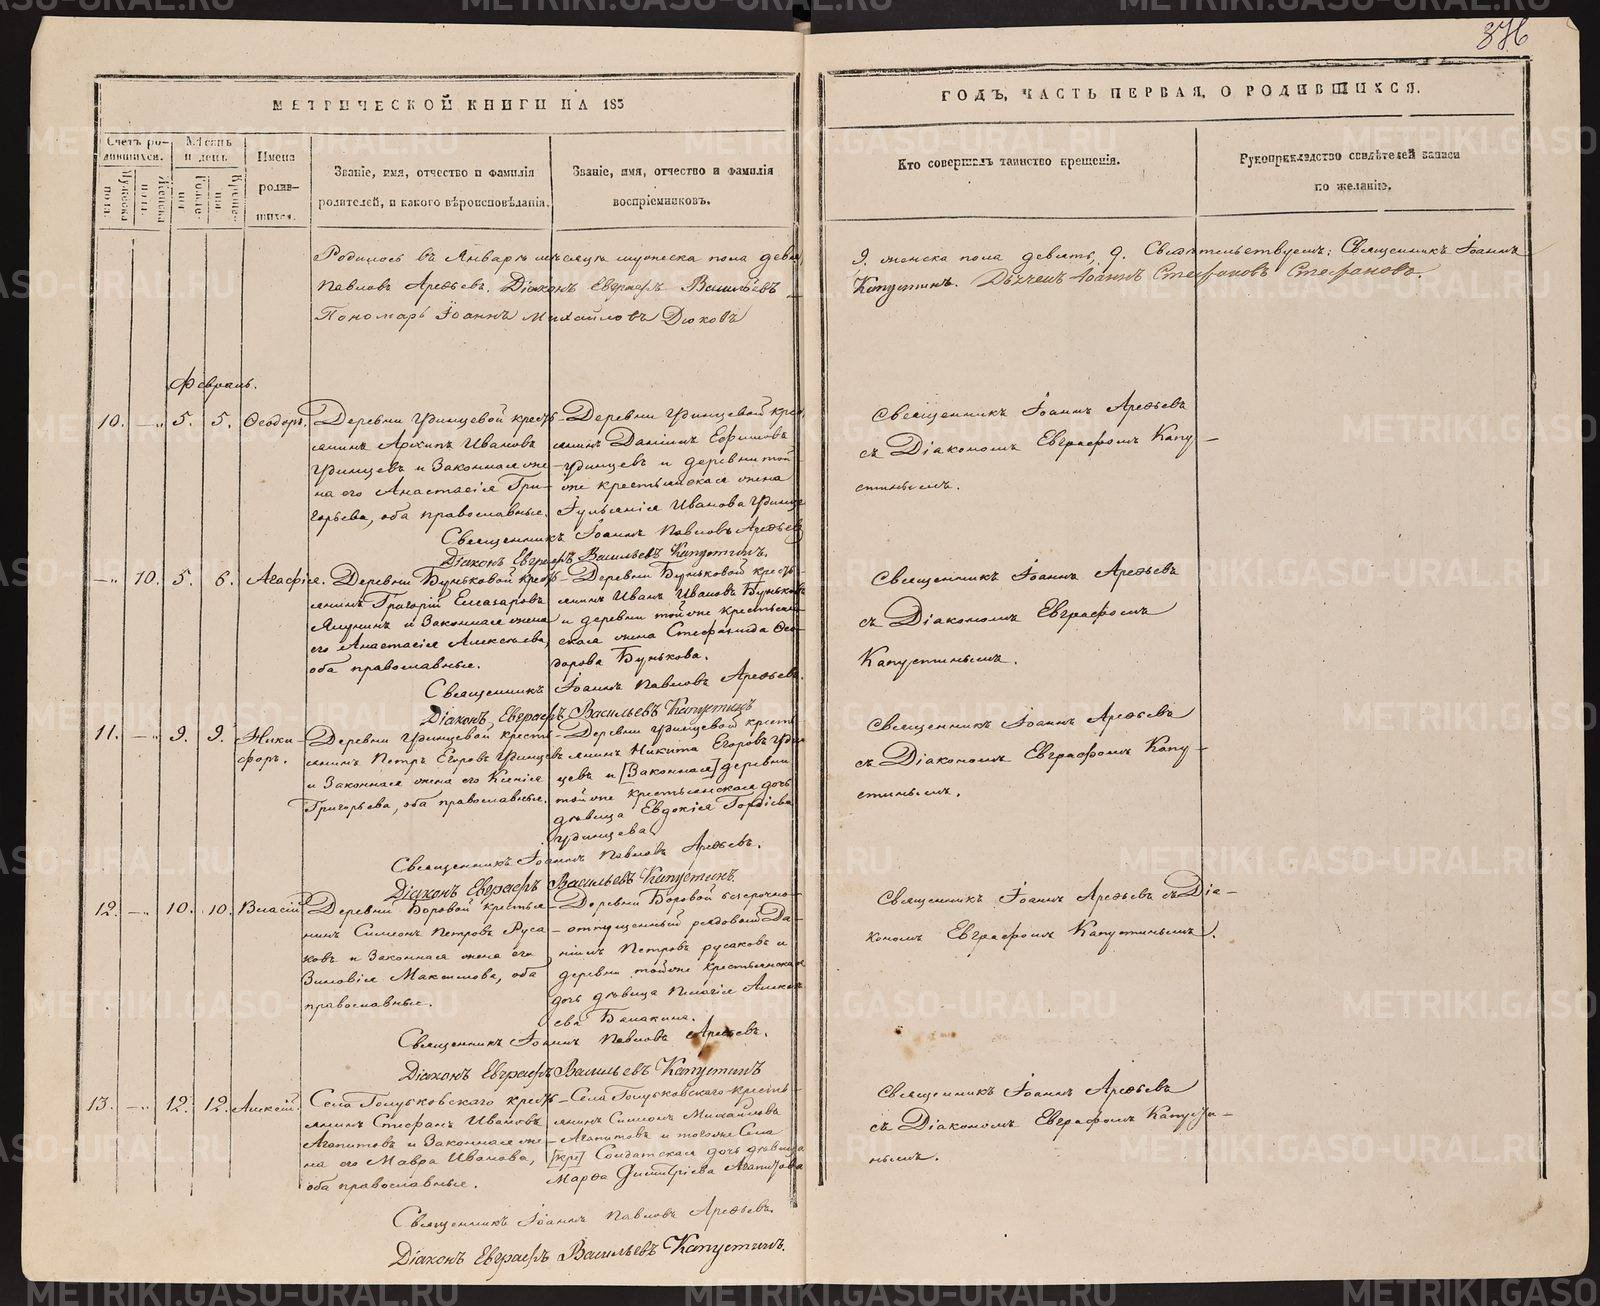 376
МЕТРИЧЕСКОЙ КНИГИ НА 185
ГОДЪ, ЧАСТЬ ПЕРВАЯ, О РОДИВШИХСЯ.
Счетъ ро-
дившихся.
Мужеска
пола.
Женска
пола.
Мѣсяцъ
и день.
Рожде-
нія
Креще-
нія
Имена
родив-
шихся.
Званіе, имя, отчество и фамилія
родителей, и какого вѣроисповѣданія.
Званіе, имя, отчество и фамилія
воспріемниковъ.
Кто совершалъ таинство крещенія.
Рукоприкладство свидѣтелей записи
по желанію.
Родилось въ Январѣ мѣсяцѣ мужеска пола девя
9. женска пола девять, 9. Свидѣтельствуемъ: Священникъ Іоаннъ
Павловъ Арефьевъ. Діаконъ Евграфъ Васильевъ
Капустинъ. Дьячекъ Іоаннъ Стефановъ Стефановъ.
Пономарь Іоаннъ Михайловъ Дюковъ
Февраль.
10. —„ 5. 5. Ѳеодоръ.
Деревни Удинцевой кресть-
янинъ Архипъ Ивановъ
Удинцевъ и Законная же-
на его Анастасія Гри-
горьева, оба православные.
Деревни Удинцевой крес
янинъ Даніилъ Ефимовъ
Удинцевъ и деревни той
же крестьянская жена
Іуліанія Иванова Удинце
Священникъ Іоаннъ Павловъ Арефьевъ
Діаконъ Евграфъ Васильевъ Капустинъ.
Священникъ Іоаннъ Арефьевъ
съ Діакономъ Евграфомъ Капу-
стинымъ.
—„ 10. 5. 6. Агафія.
Деревни Буньковой кресть-
янинъ Григорій Елеазаровъ
Ялунинъ и Законная жена
его Анастасія Алексѣева,
оба православные.
Деревни Буньковой кресть-
янинъ Иванъ Ивановъ Буньковъ
и деревни той же крестьян-
ская жена Стефанида Ѳео-
дорова Бунькова.
Священникъ Іоаннъ Павловъ Арефьевъ.
Діаконъ Евграфъ Васильевъ Капустинъ
Священникъ Іоаннъ Арефьевъ
съ Діакономъ Евграфомъ
Капустинымъ.
11. —„ 9. 9. Ники-
форъ.
Деревни Удинцевой кресть-
янинъ Петръ Егоровъ Удинцевъ
и Законная жена его Ксенія
Григорьева, оба православные.
Деревни Удинцевой кресть
янинъ Никита Егоровъ Удин
цевъ и [Законная] деревни
той же крестьянская дочь
дѣвица Евдокія Гордіева
Удинцева
Священникъ Іоаннъ Павловъ Арефьевъ.
Діаконъ Евграфъ Васильевъ Капустинъ.
Священникъ Іоаннъ Арефьевъ
съ Діакономъ Евграфомъ Капу-
стинымъ.
12. —„ 10. 10. Власій
Деревни Боровой крестья-
нинъ Симеонъ Петровъ Руса-
ковъ и Законная жена его
Зиновія Максимова, оба
православные.
Деревни Боровой безсрочно-
отпущенный рядовой Да-
ніилъ Петровъ Русаковъ и
деревни той же крестьянская
дочь дѣвица Пелагія Алексѣ
ева Балакина.
Священникъ Іоаннъ Павловъ Арефьевъ.
Діаконъ Евграфъ Васильевъ Капустинъ
Священникъ Іоаннъ Арефьевъ съ Діа-
кономъ Евграфомъ Капустинымъ.
13. —„ 12. 12. Алексій.
Села Голубковскаго кресть-
янинъ Стефанъ Ивановъ
Агапитовъ и Законная же-
на его Мавра Иванова,
оба православные.
Села Голубковскаго кресть-
янинъ Симеонъ Михайловъ
Агапитовъ и того же Села
[кре] Солдатская дочь дѣвица
Марѳа Димитріева Агапитова
Священникъ Іоаннъ Павловъ Арефьевъ.
Діаконъ Евграфъ Васильевъ Капустинъ.
Священникъ Іоаннъ Арефьевъ
съ Діакономъ Евграфомъ Капусти-
нымъ.
METRIKI.GASO-URAL.RU